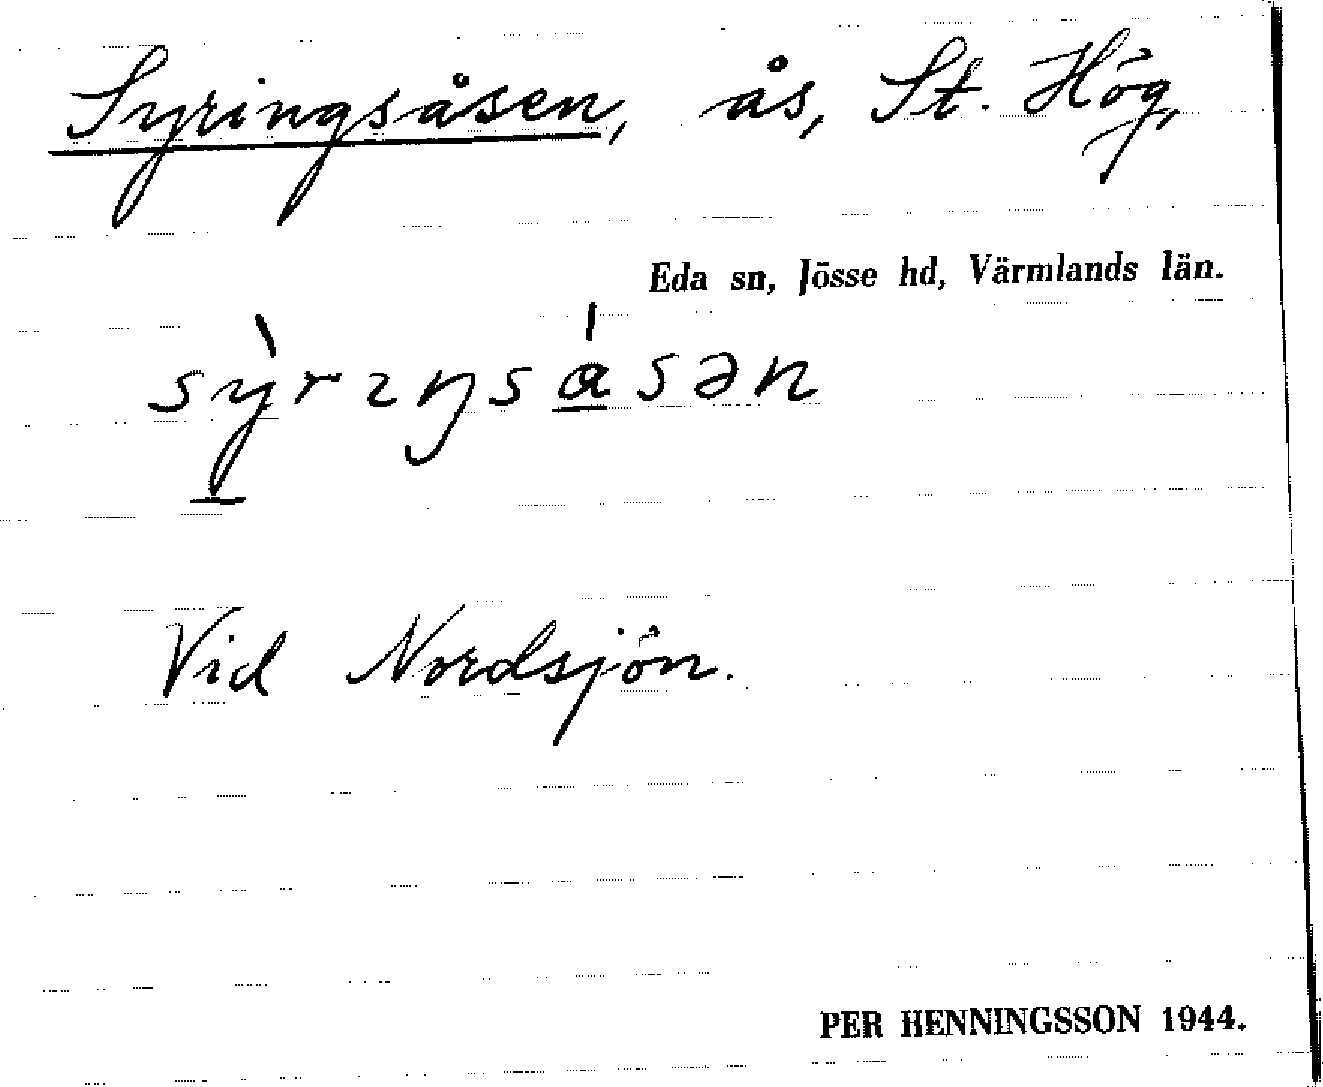 Syringsåsen, ås, St. Hög,
Eda sn, Jösse hd, Värmlands län.
sỳ̠rɪŋsá̠sən
Vid Nordsjön.
PER HENNINGSSON 1944.